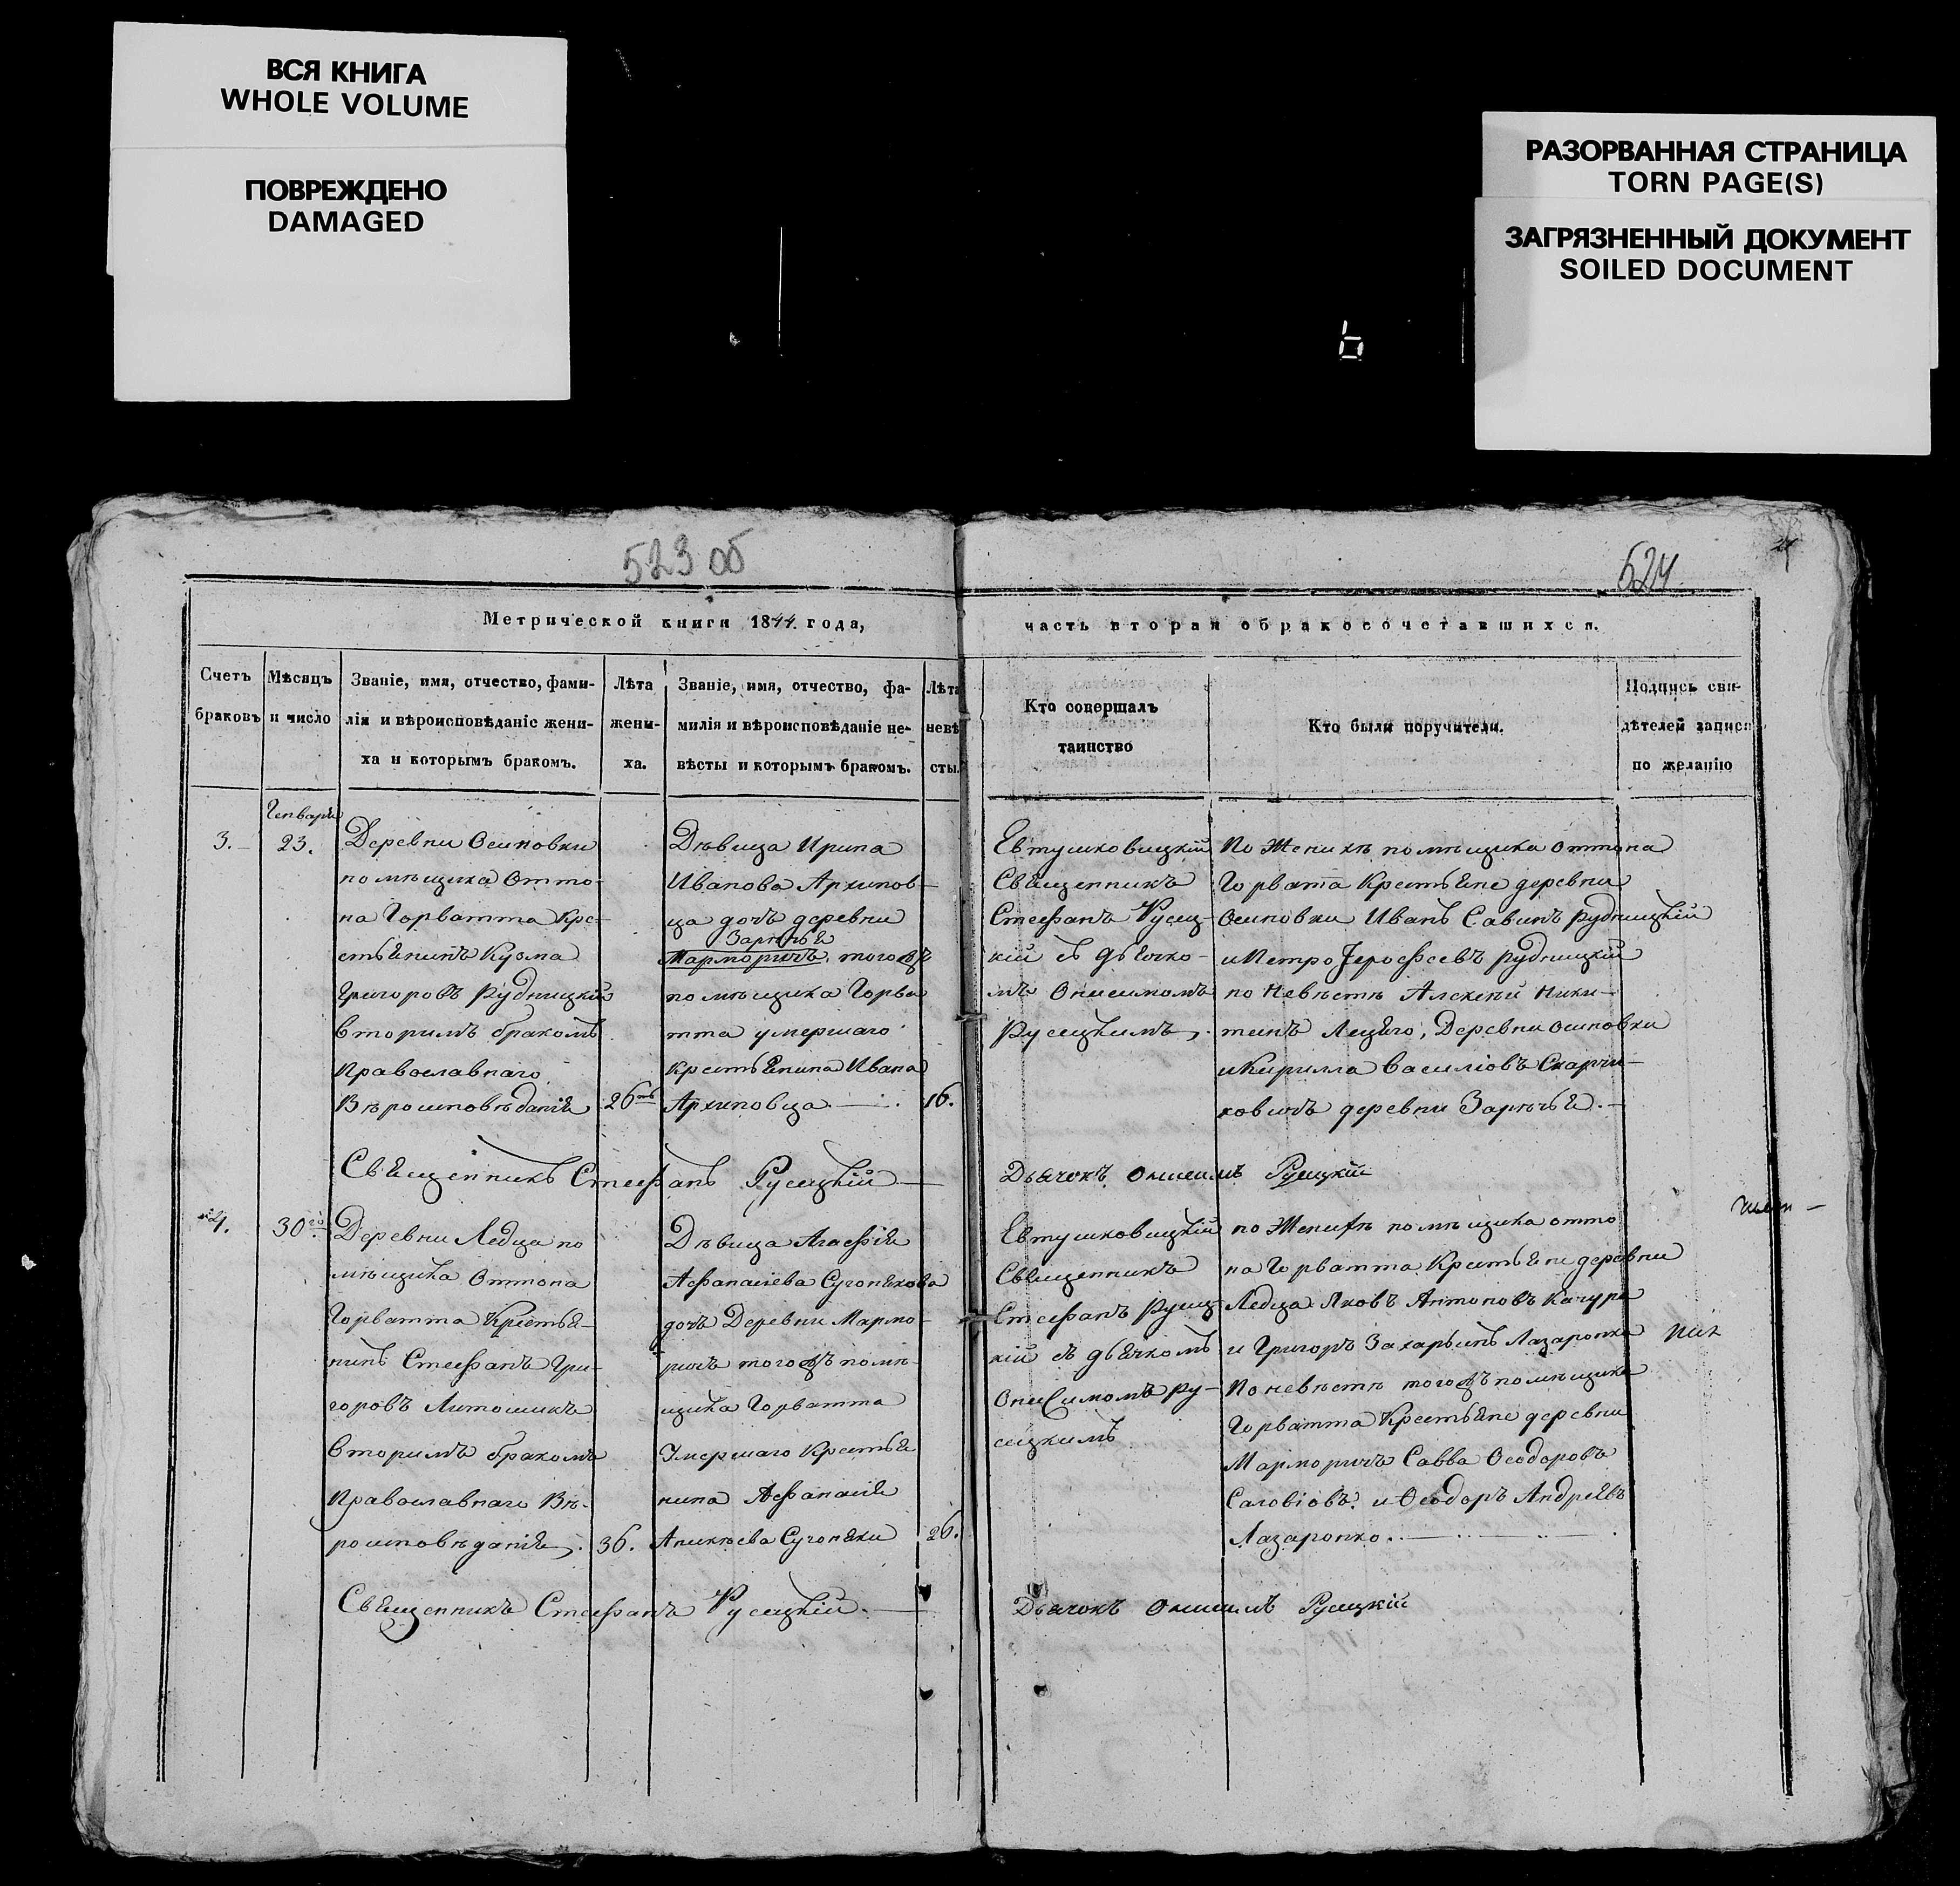 ВСЯ КНИГА
WHOLE VOLUME
ПОВРЕЖДЕНО
DAMAGED
РАЗОРВАННАЯ СТРАНИЦА
TORN PAGE(S)
ЗАГРЯЗНЕННЫЙ ДОКУМЕНТ
SOILED DOCUMENT
523 об
524
Метрической книги 1844. года,
часть вторая о бракосочетавшихся.
Счетъ
браковъ
Мѣсяцъ
и число
Званіе, имя, отчество, фами-
лія и вѣроисповѣданіе жени-
ха и которымъ бракомъ.
Лѣта
жени-
ха.
Званіе, имя, отчество, фа-
милія и вѣроисповѣданіе не-
вѣсты и которымъ бракомъ.
Лѣта
невѣ
сты.
Кто совершалъ
таинство
Кто были поручители.
Подпись сви-
дѣтелей записи
по желанію
3.
Генваря
23.
Деревни Осиповки
помѣщика Отто-
на Горватта Кре-
стьянинъ Кузма
Григоровъ Рудницкій
вторимъ бракомъ
Православнаго
Вѣроисповѣданія
26
Дѣвица Ирина
Иванова Архипов-
ца дочь деревни
Зарѣчья
Марморичъ, тогожъ
помѣщика Горва
тта умершаго
крестьянина Ивана
Архиповца
16.
Евтушковицкій
Священникъ
Стефанъ Русец-
кій съ дьячко-
мъ Онисимомъ
Русецкимъ,
По Женихѣ помѣщика Оттона
Горвата Крестьяне деревни
Осиповки Иванъ Савинъ Рудницкій
и Петро Іерофеевъ Рудницкій
по Невѣстѣ Алексѣй Ники-
тинъ Лецяго, Деревни Осиповки
и Кирилла Василіовъ Скарчи-
ковичъ деревни Зарѣчья.
Священникъ Стефанъ Русецкій
Дьячокъ Онисимъ Русецкій
4.
30го
Деревни Ледца по
мѣщика Оттона
Горватта Крестья-
нинъ Стефанъ Гри-
горовъ Литошикъ
вторимъ бракомъ
Православнаго Вѣ-
роисповѣданія,
36.
Дѣвица Агафія
Афанасіева Сугонякова
дочь Деревни Мармо-
ричъ тогожъ помѣ-
щика Горватта
Умершаго Крестья
нина Афанасія
Аникѣева Сугоняки
26.
Евтушковицкій
Священникъ
Стефанъ Русец-
кій съ дьячкомъ
Онисимомъ Ру-
сецкимъ
по Женихѣ помѣщика Отто
на Горватта Крестьяне деревни
Ледца Яковъ Антоновъ Качура
и Григоръ Захарьинъ Лазаронко
По невѣстѣ тогожъ помѣщика
Горватта Крестьяне деревни
Марморичъ Савва Ѳеодоровъ
Саговіовъ и Ѳеодоръ Андреевъ
Лазаронко.
Священникъ Стефанъ Русецкій.
Дьячокъ Онисимъ Русецкій